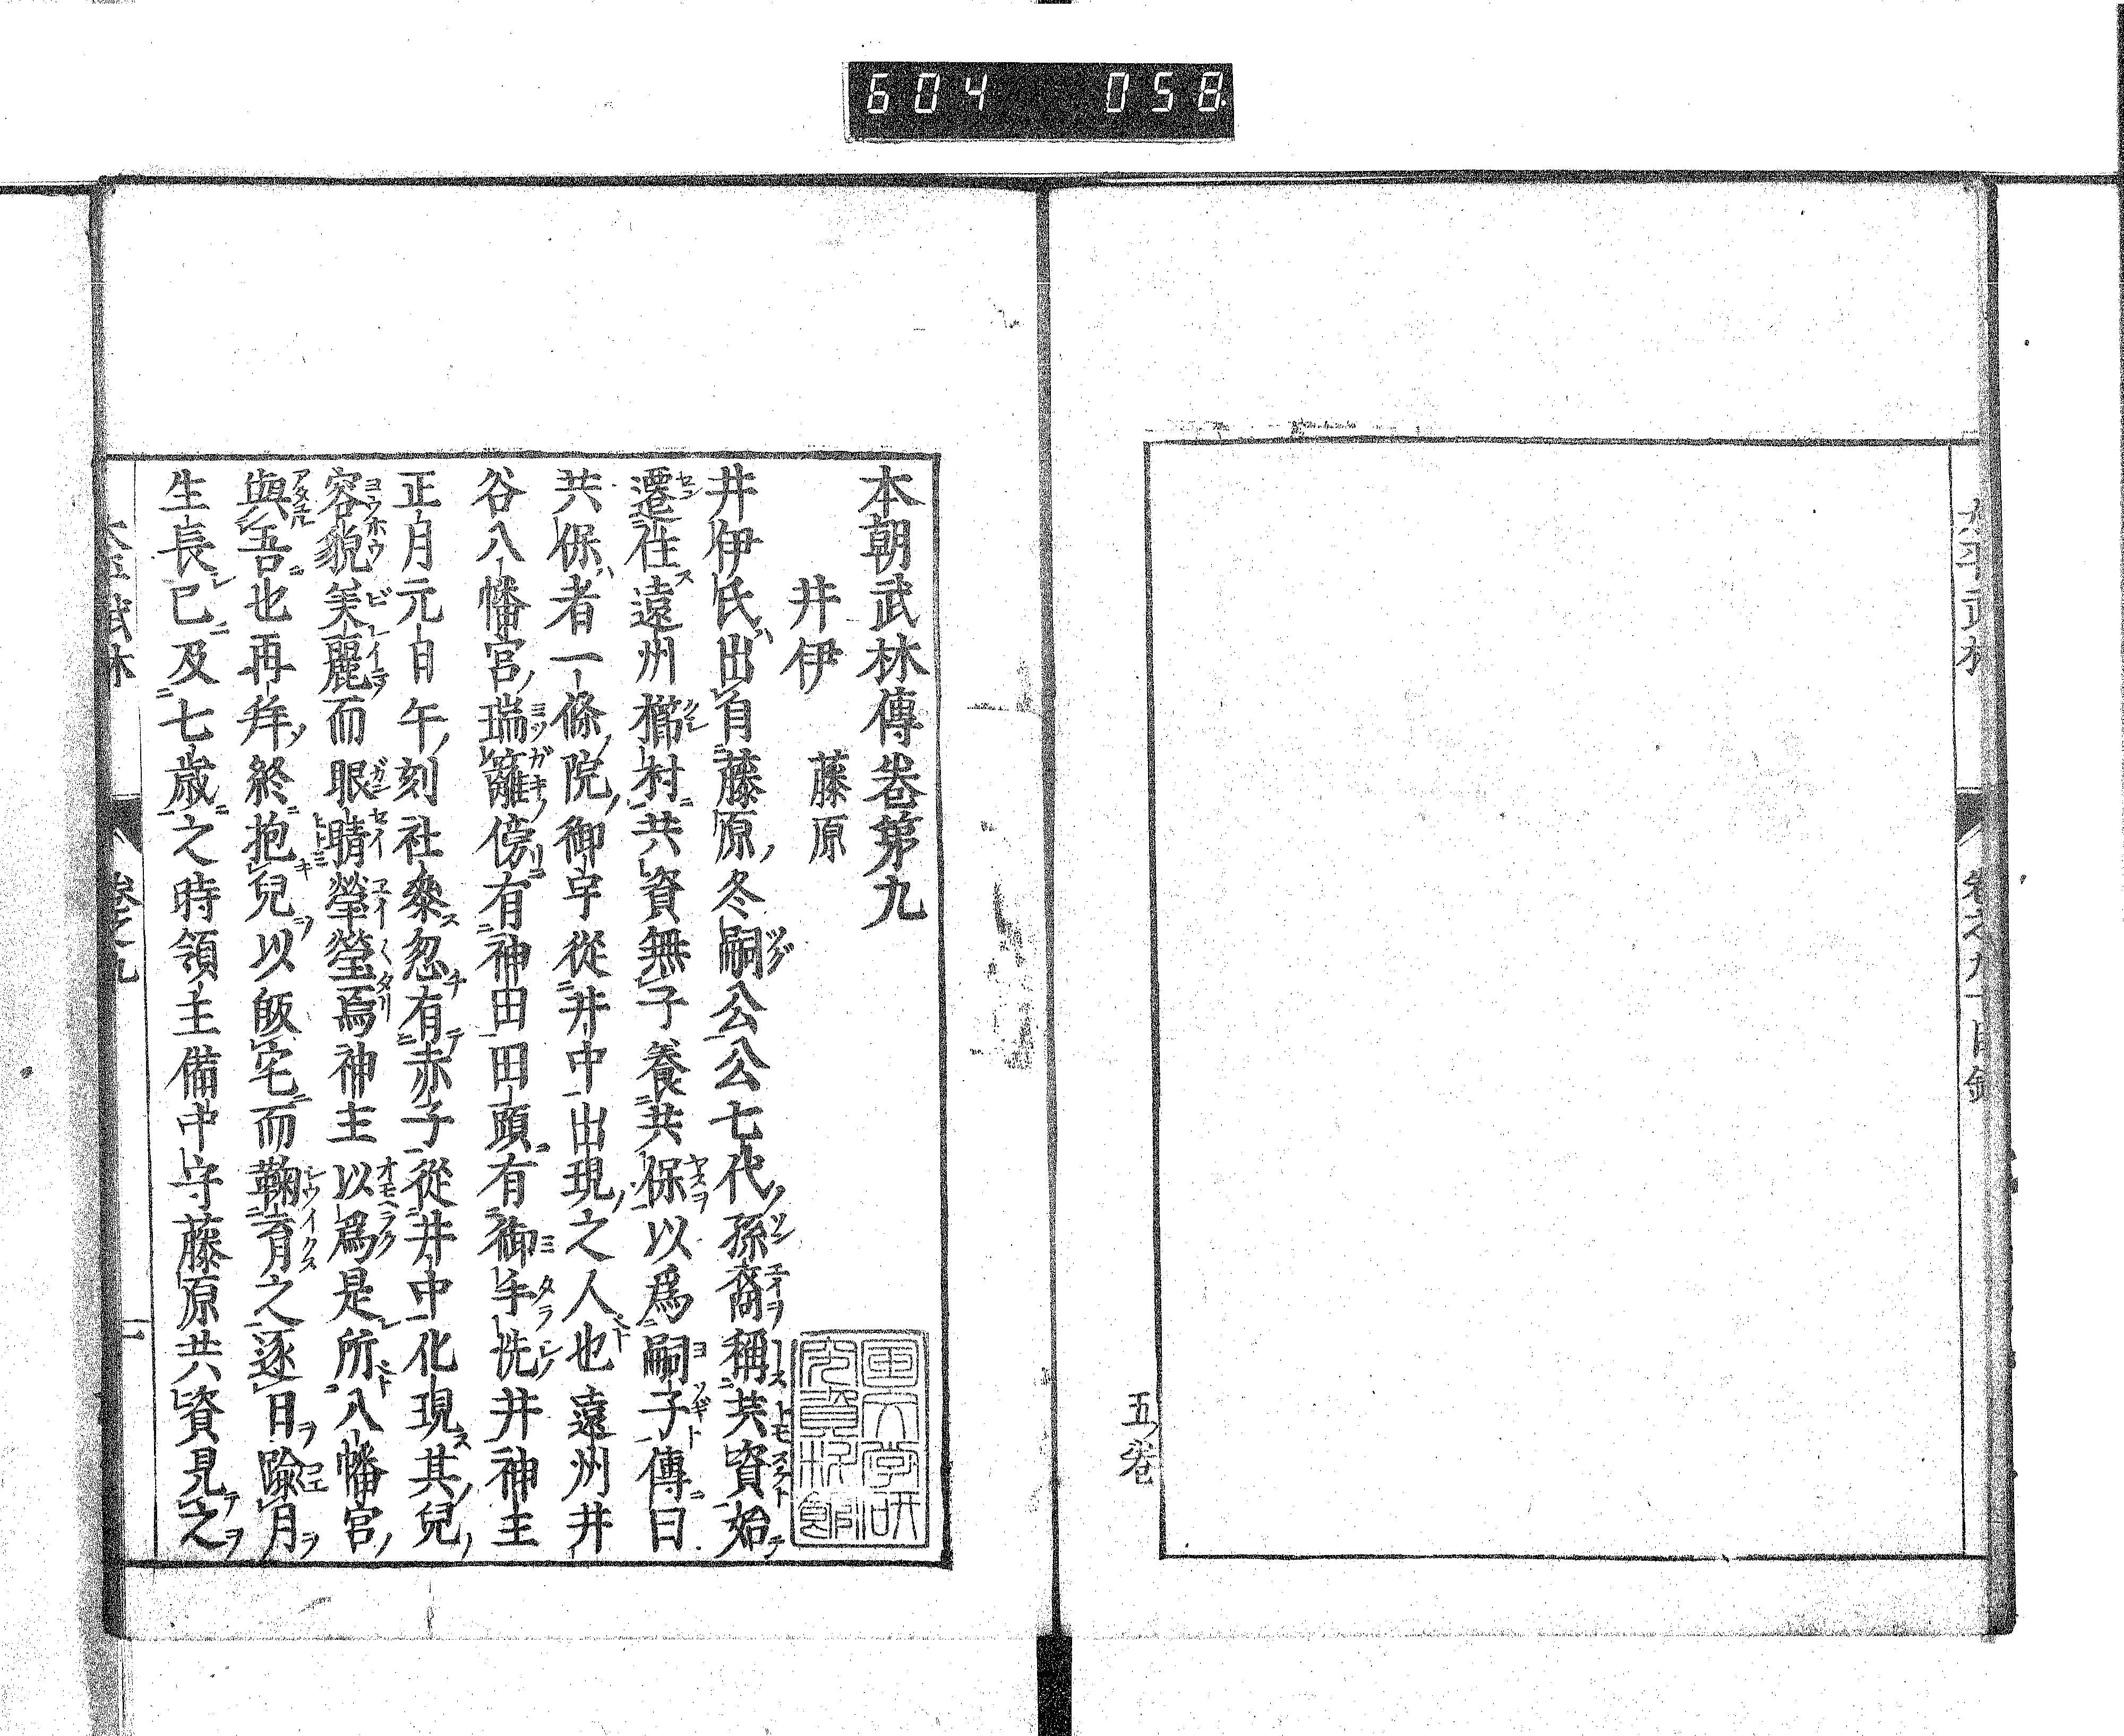 604 058
五ノ巻
本朝武林傳卷第九
井伊 藤原
井伊氏出自藤原冬嗣公公七代孫裔稱共資始
遷徃遠州㰵村共資無子養共保以爲嗣子傳曰
共保者一條院御宇從井中出現之人也遠州井
谷八幡宮瑞籬傍有神田田頭有御手洗井神主
正月元日午刻社參忽有赤子從井中化現其兒
容貌美麗而眼睛瑩瑩焉神主以爲是所八幡宮
與吾也再拜終抱兒以皈宅而鞠育之逐日踰月
生長已及七歳之時領主備中守藤原共資見之
卷之九